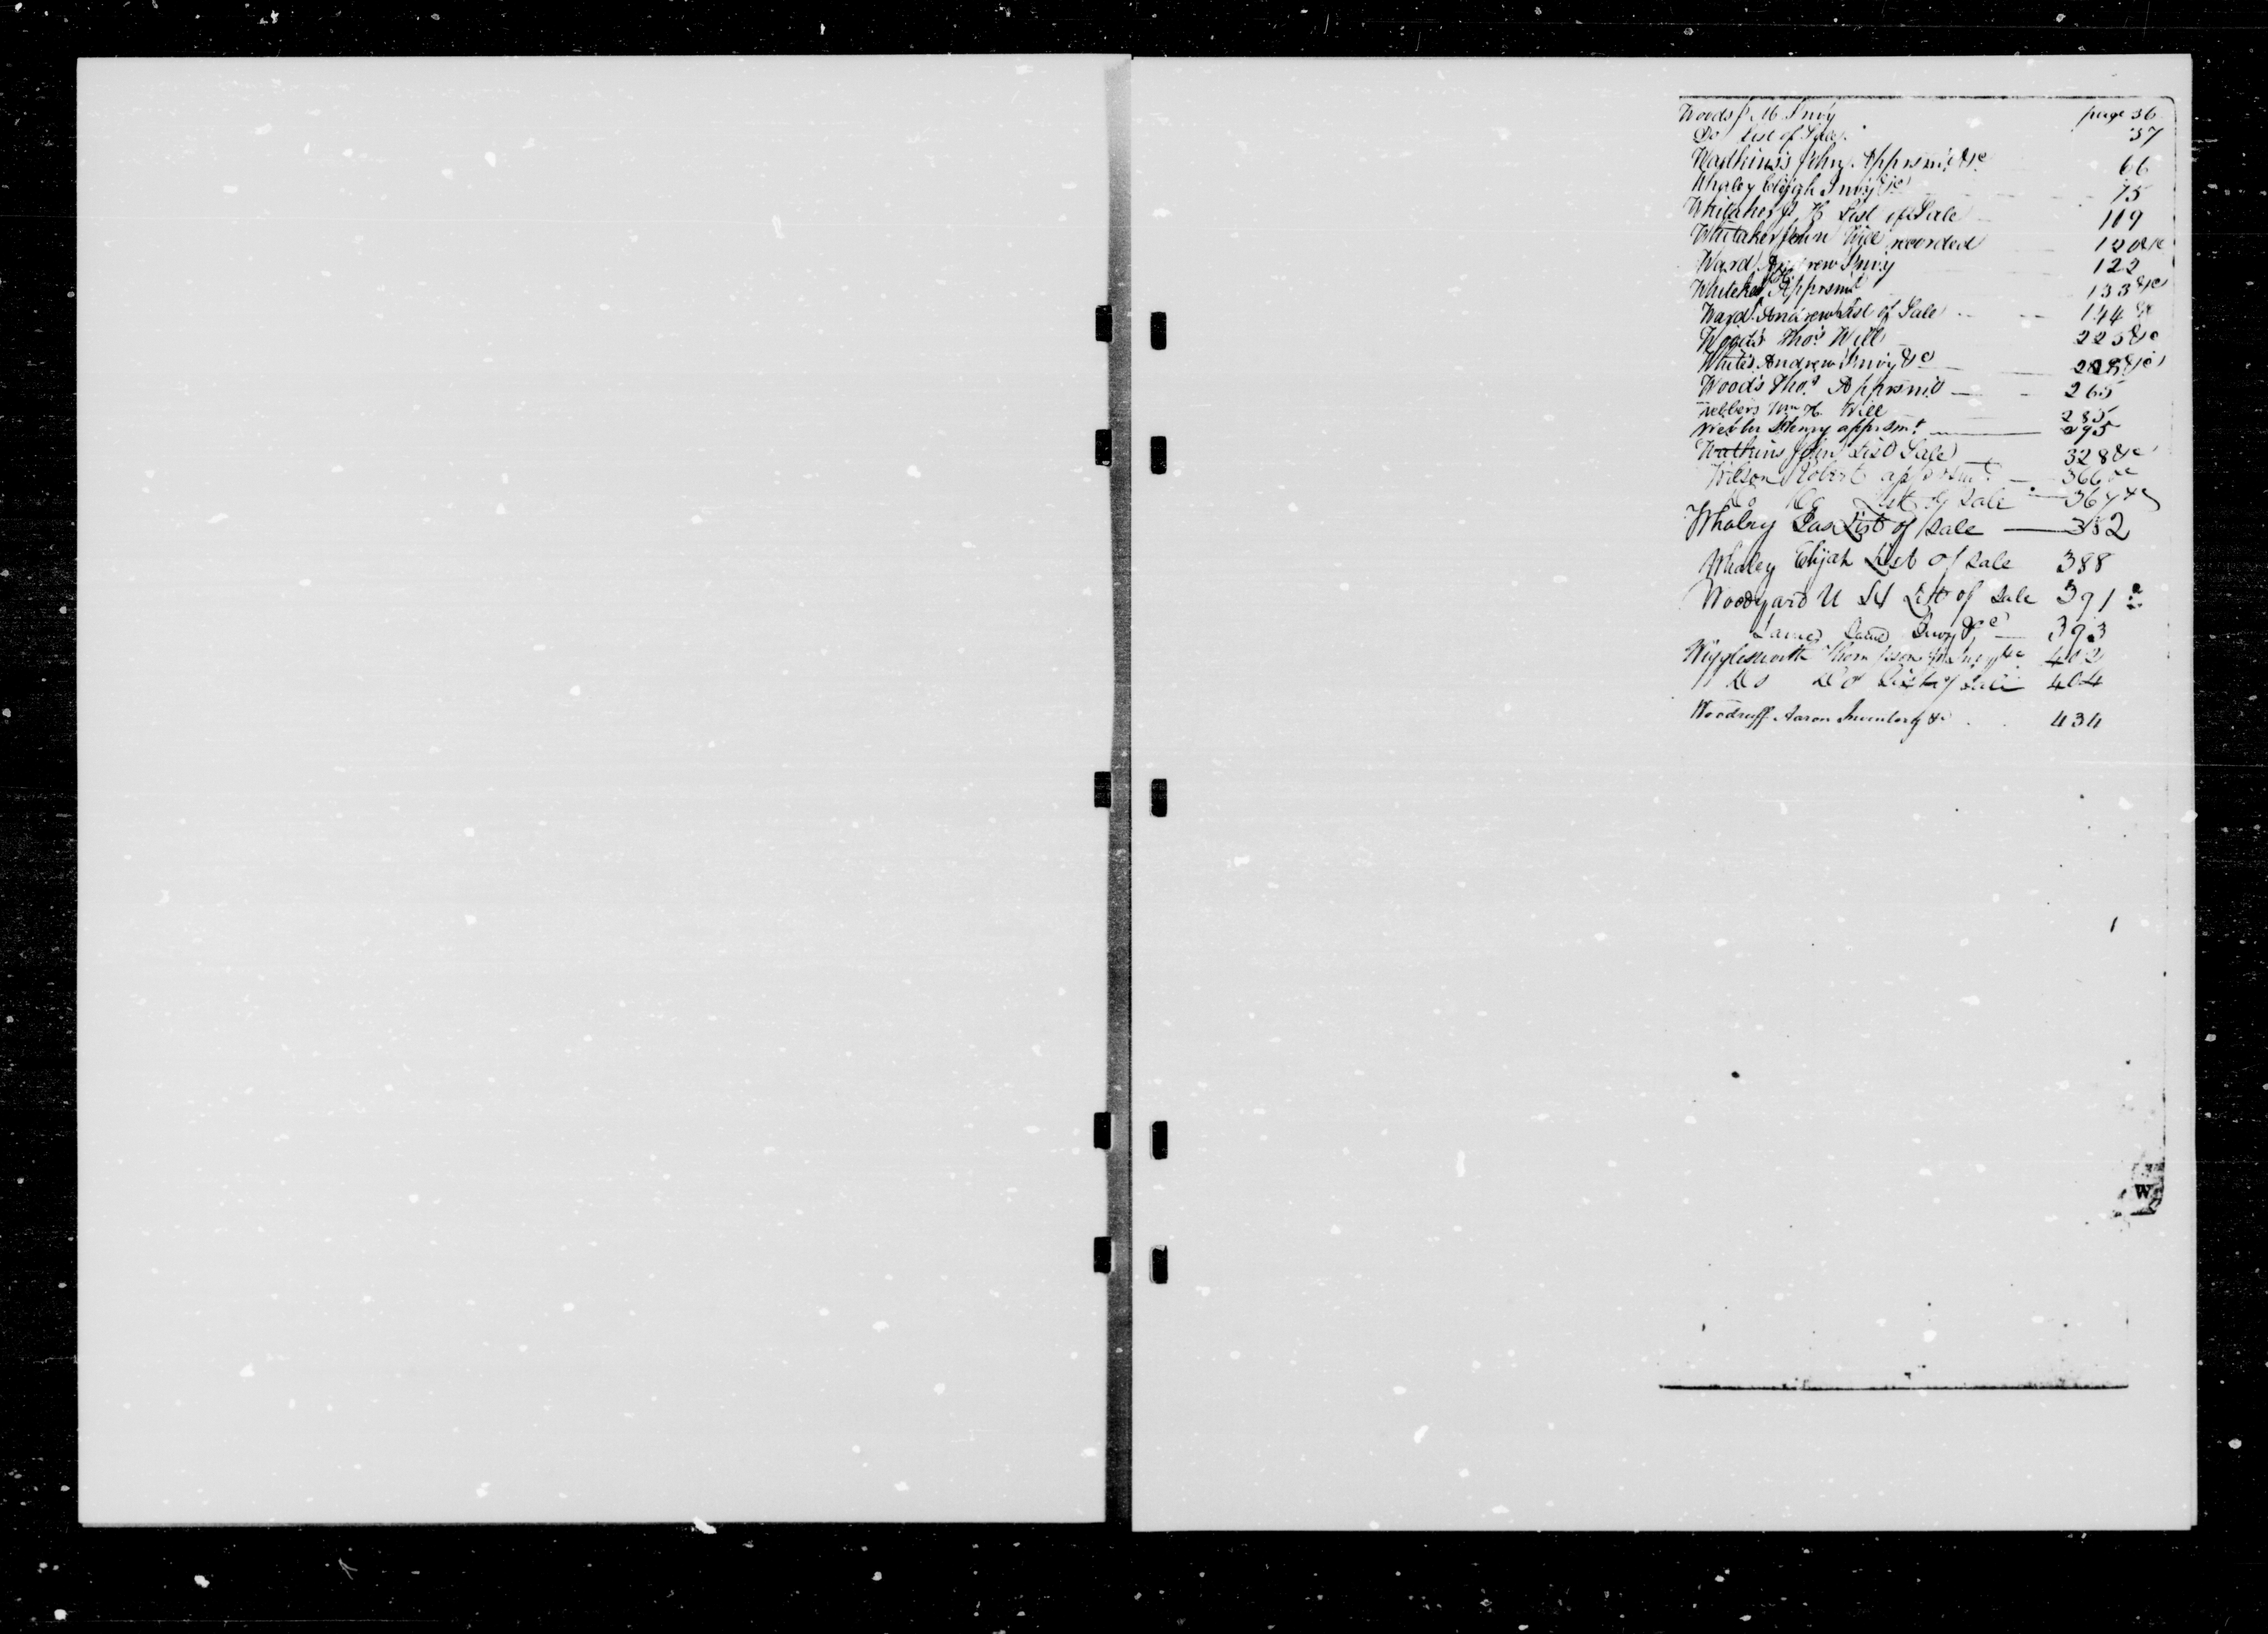 Woods J. M. Invy page 36
Do List of Sales 37
Wadkins's John Apprsmt &c 66
Whaley Elijah Invy &c 75
Whitaker J. H List of Sale 119
Whitaker John Will recorded 120 &c
Ward Andrew Invy 122
Whitaker Apprsmt 133 &c
Ward Andrew List of Sale 144 &c
Woods Thos Will 225 &c
White's Andrew Invy &c 228 &c
Wood's Thos Apprsmt 265
Webbers Wm H. Will 285
Webber Henry apprsmt 295
Watkins John List Sale 328 &c
Wilson Robert apprsmt 366 &c
Do Do List of Sale 367 &c
Whaley Jas List of Sale 382
Whaley Elijah List of Sale 388
Woodyard List of Sale 391
Same Same Invy &c 393
Wigglesworth Thompson Invy &c 402
Do Do List of Sale 404
Woodruff Aaron Inventory &c 434
W